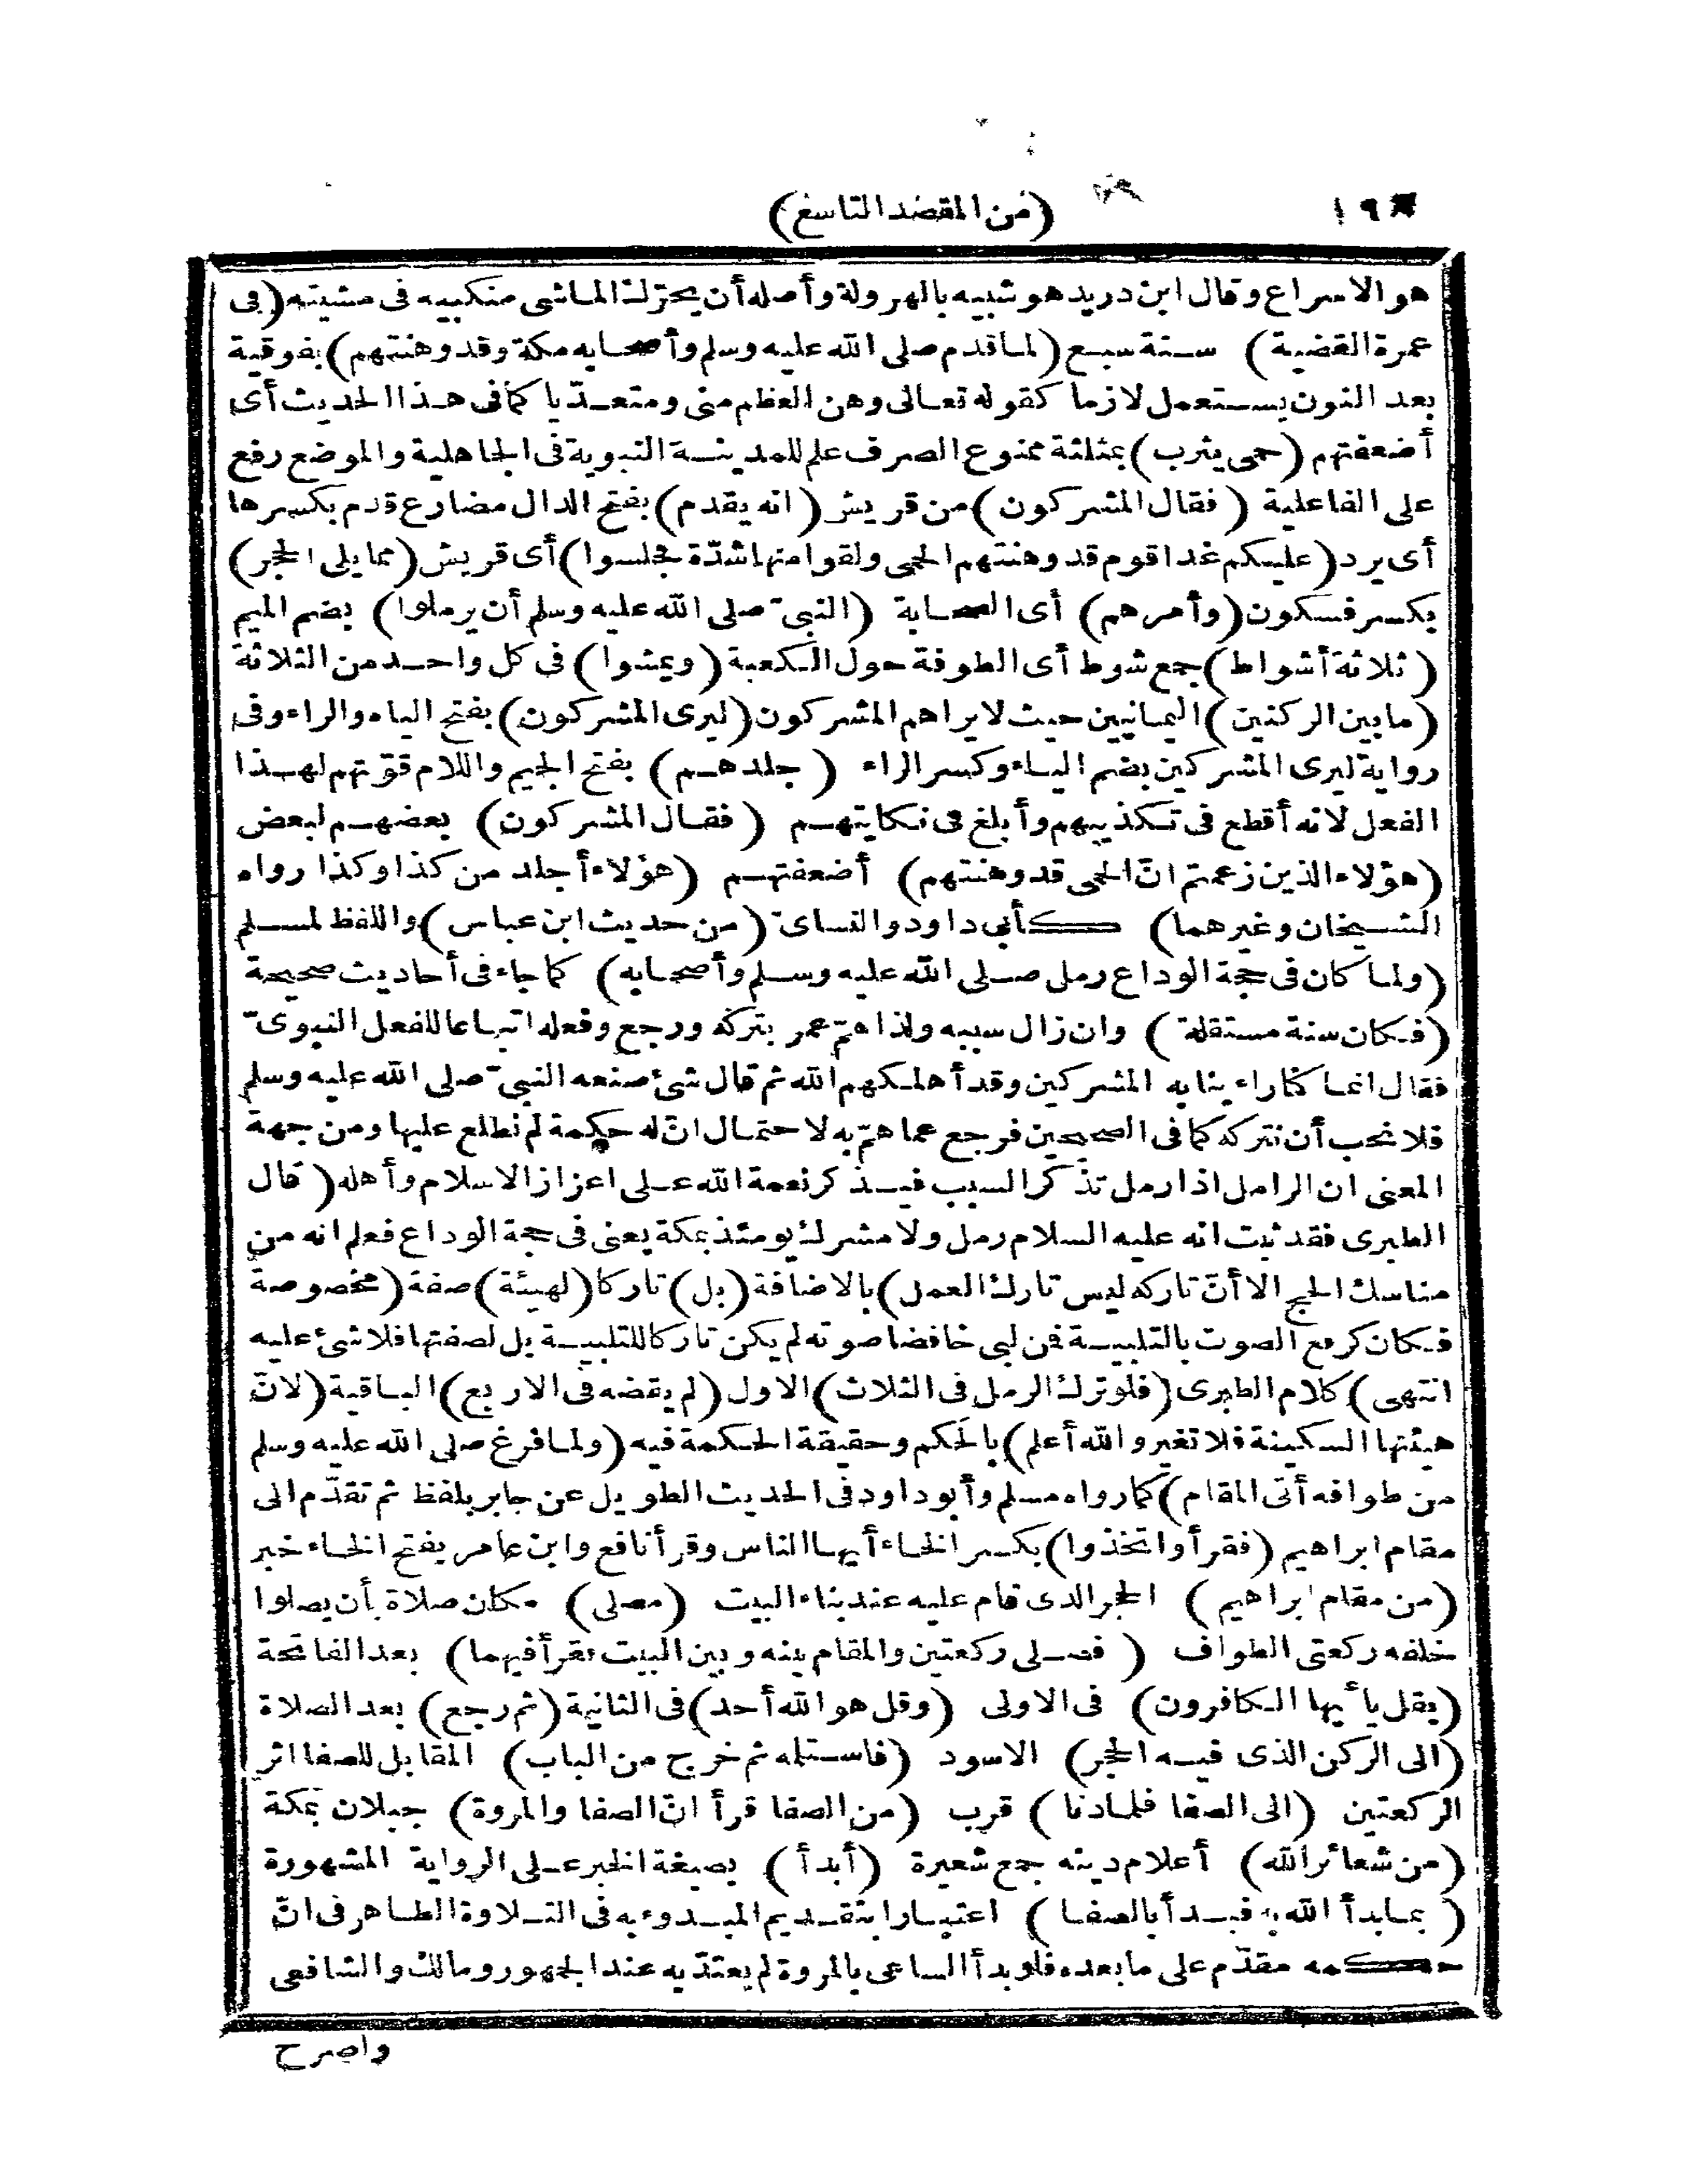 (من المقصد التاسع)
هو الاسراع وقال ابن دريد هو شبيه بالهرولة وأصله أن يحرّك الماشى منكبيه فى مشيته (فى
عمرة القضية) سنة سبع (لما قدم صلى الله عليه وسلم وأصحابه مكة وقد وهنتهم) بفوقية
بعد النون يستعمل لازما كقوله تعالى وهن العظم منى ومتعدّيا كما فى هذا الحديث أى
أضعفتهم (حمى يثرب) بمثلثة ممنوع الصرف علم للمدينة النبوية فى الجاهلية والموضع رفع
على الفاعلية (فقال المشركون) من قريش (انه يقدم) بفتح الدال مضارع قدم بكسرها
أى يرد (عليكم غدا قوم قد وهنتهم الحمى ولقوا منها شدّة فجلسوا) أى قريش (مما يلى الحجر)
بكسر فسكون (وأمرهم) أى الصحابة (النبىّ صلى الله عليه وسلم أن يرملوا) بضم الميم
(ثلاثة أشواط) جمع شوط أى الطوفة حول الكعبة (ويمشوا) فى كل واحد من الثلاثة
(ما بين الركنين) اليمانيين حيث لا يراهم المشركون (ليرى المشركون) بفتح الياء والراء وفى
رواية ليرى المشركين بضم الياء وكسر الراء (جلدهم) بفتح الجيم واللام قوّتهم لهذا
الفعل لانه أقطع فى تكذيبهم وأبلغ فى نكايتهم (فقال المشركون) بعضهم لبعض
(هؤلاء الذين زعمتم انّ الحمى قد وهنتهم) أضعفتهم (هؤلاء أجلد من كذا وكذا رواه
الشيخان وغيرهما) كأبى داود والنساىّ (من حديث ابن عباس) واللفظ لمسلم
(ولما كان فى حجة الوداع رمل صلى الله عليه وسلم وأصحابه) كما جاء فى أحاديث صحيحة
(فكان سنة مستقلة) وان زال سببه ولذا همّ عمر بتركه ورجع وفعله اتباعا للفعل النبوىّ
فقال انما كنا راءينا به المشركين وقد أهلكهم الله ثم قال شئ صنعه النبىّ صلى الله عليه وسلم
فلا نحب أن نتركه كما فى الصحيحين فرجع عما همّ به لاحتمال انّ له حكمة لم نطلع عليها ومن جهة
المعنى ان الرامل اذا رمل تذكر السبب فيذكر نعمة الله على اعزاز الاسلام وأهله (قال
الطبرى فقد ثبت انه عليه السلام رمل ولا مشرك يومئذ بمكة يعنى فى حجة الوداع فعلم انه من
مناسك الحج الا أنّ تاركه ليس تارك العمل) بالاضافة (بل) تاركا (لهيئة) صفة (مخصوصة
فكان كرفع الصوت بالتلبية فمن لبى خافضا صوته لم يكن تاركا للتلبية بل لصفتها فلا شئ عليه
انتهى) كلام الطبرى (فلو ترك الرمل فى الثلاث) الاول (لم يقضه فى الاربع) الباقية (لانّ
هيئتها السكينة فلا تغير والله أعلم) بالحكم وحقيقة الحكمة فيه (ولما فرغ صلى الله عليه وسلم
من طوافه أتى المقام) كما رواه مسلم وأبو داود فى الحديث الطويل عن جابر بلفظ ثم تقدّم الى
مقام ابراهيم (فقرأ واتخذوا) بكسر الخاء أيها الناس وقرأ نافع وابن عامر بفتح الخاء خبر
(من مقام ابراهيم) الحجر الذى قام عليه عند بناء البيت (مصلى) مكان صلاة بأن يصلوا
خلفه ركعتى الطواف (فصلى ركعتين والمقام بينه وبين البيت فقرأ فيهما) بعد الفاتحة
(بقل يا أيها الكافرون) فى الاولى (وقل هو الله أحد) فى الثانية (ثم رجع) بعد الصلاة
(الى الركن الذى فيه الحجر) الاسود (فاستلمه ثم خرج من الباب) المقابل للصفا اثر
الركعتين (الى الصفا فلما دنا) قرب (من الصفا قرأ انّ الصفا والمروة) جبلان بمكة
(من شعائر الله) أعلام دينه جمع شعيرة (أبدأ) بصيغة الخبر على الرواية المشهورة
(بما بدأ الله به فبدأ بالصفا) اعتبارا بتقديم المبدوء به فى التلاوة الظاهر فى انّ
حكمه مقدّم على ما بعده فلو بدأ الساعى بالمروة لم يعتدّ به عند الجمهور ومالك والشافعى
واصرح